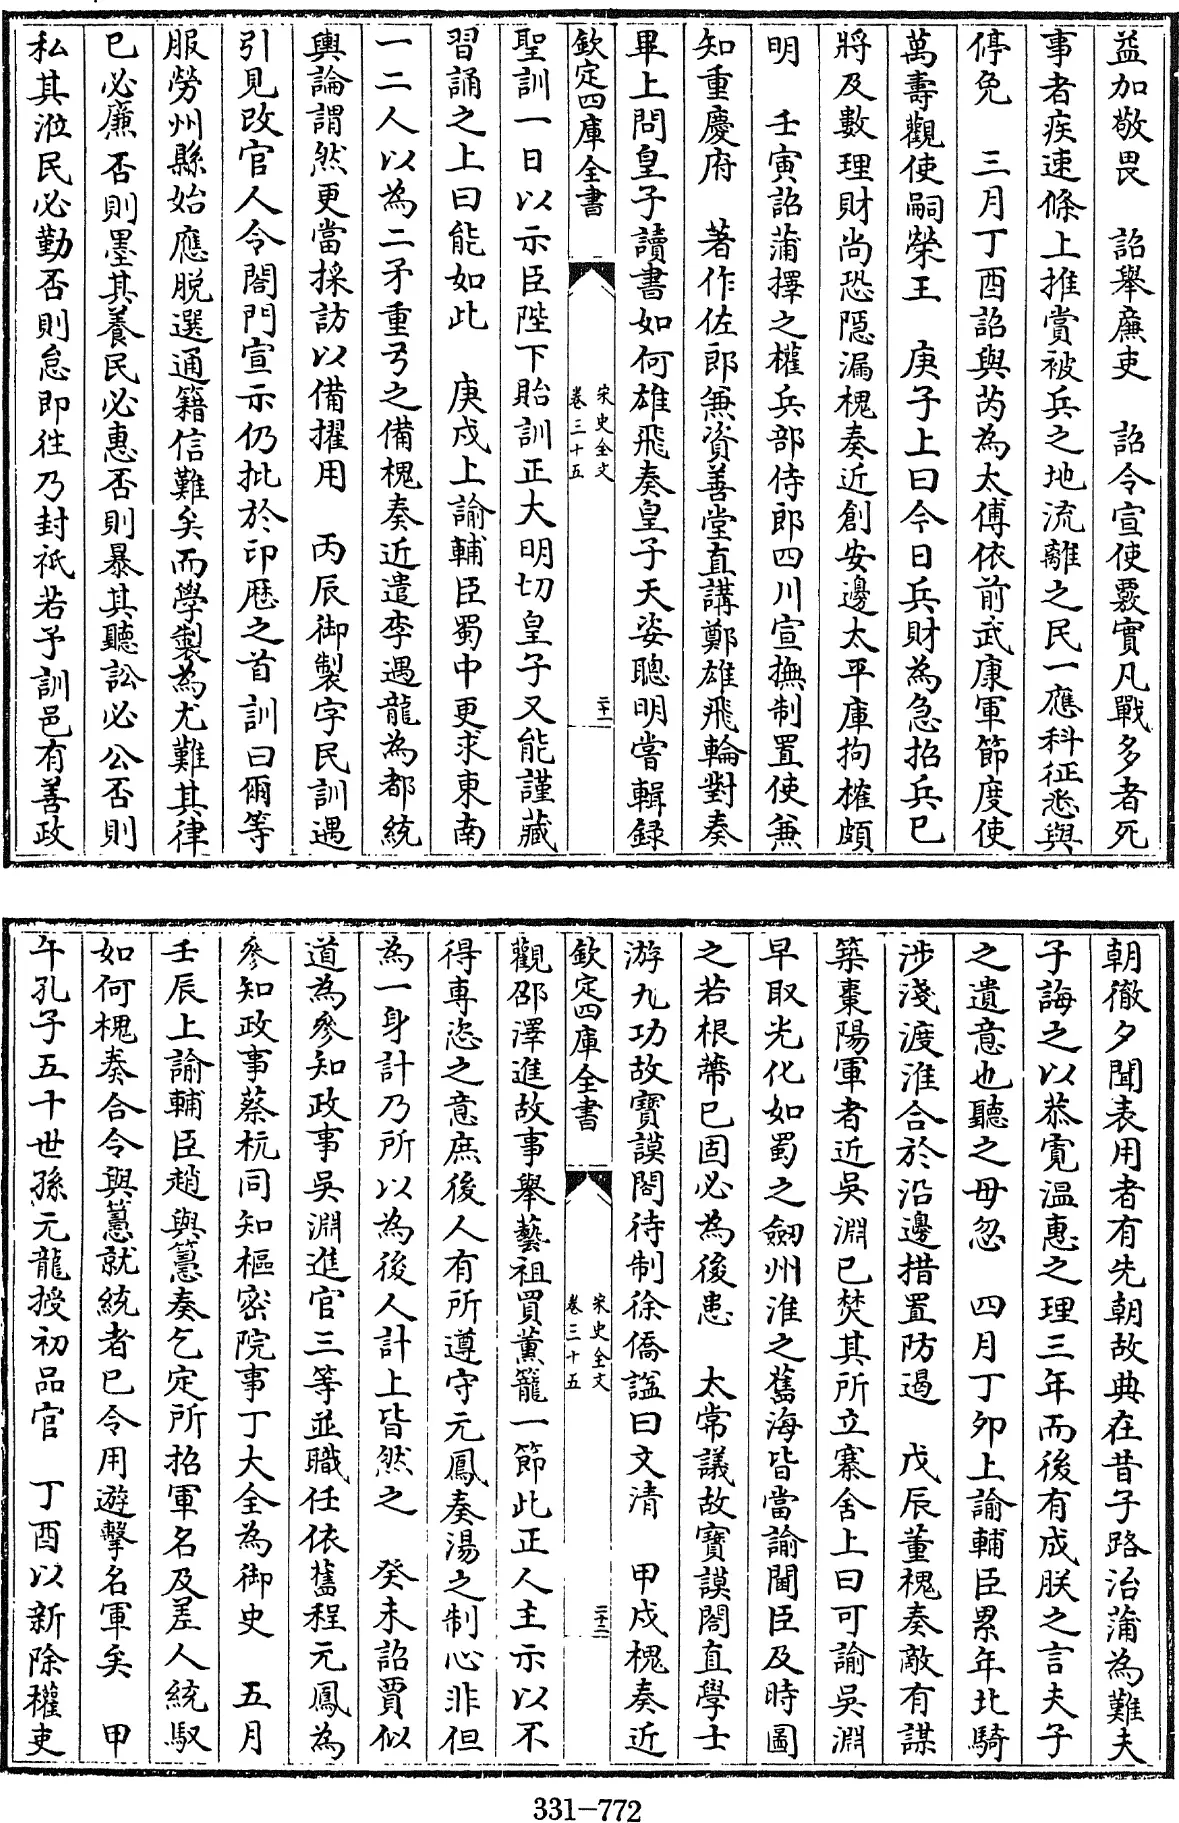 益加敬畏　詔舉廉吏　詔令宣使覈實凡戰多者死
事者疾速條上推賞被兵之地流離之民一應科征悉與
停免　三月丁酉詔與芮為太傅依前武康軍節度使
萬壽觀使嗣榮王　庚子上曰今日兵財為急招兵已
將及數理財尚恐隠漏槐奏近創安邊太平庫拘榷頗
明　壬寅詔蒲擇之權兵部侍郎四川宣撫制置使兼
知重慶府　著作佐郎兼資善堂直講鄭雄飛輪對奏
畢上問皇子讀書如何雄飛奏皇子天姿聰明嘗輯録
欽定四庫全書
宋史全文
卷三十五
二十一
聖訓一日以示臣陛下貽訓正大明切皇子又能謹藏
習誦之上曰能如此　庚戌上諭輔臣蜀中更求東南
一二人以為二矛重弓之備槐奏近遣李遇龍為都統
輿論謂然更當採訪以備擢用　丙辰御製字民訓遇
引見改官人令閤門宣示仍批於印歴之首訓曰爾等
服勞州縣始應脱選通籍信難矣而學製為尤難其律
已必廉否則墨其養民必惠否則暴其聽訟必公否則
私其涖民必勤否則怠即往乃封祇若予訓邑有善政
朝徹夕聞表用者有先朝故典在昔子路治蒲為難夫
子誨之以恭寛温惠之理三年而後有成朕之言夫子
之遺意也聽之毋忽　四月丁夘上諭輔臣累年北騎
涉淺渡淮合於沿邊措置防遏　戊辰董槐奏敵有謀
築棗陽軍者近吳淵已焚其所立寨舍上曰可諭吳淵
早取光化如蜀之劒州淮之舊海皆當諭閫臣及時圖
之若根蔕已固必為後患　太常議故寶謨閣直學士
游九功故寶謨閣待制徐僑諡曰文清　甲戌槐奏近
欽定四庫全書
宋史全文
卷三十五
二十二
觀邵澤進故事舉藝祖買薰籠一節此正人主示以不
得專恣之意庶後人有所遵守元鳳奏湯之制心非但
為一身計乃所以為後人計上皆然之　癸未詔賈似
道為參知政事吳淵進官三等並職任依舊程元鳳為
參知政事蔡杭同知樞密院事丁大全為御史　五月
壬辰上諭輔臣趙與𥲅奏乞定所招軍名及差人統馭
如何槐奏合令與𥲅就統者已令用遊擊名軍矣　甲
午孔子五十世孫元龍授初品官　丁酉以新除權吏
331-772